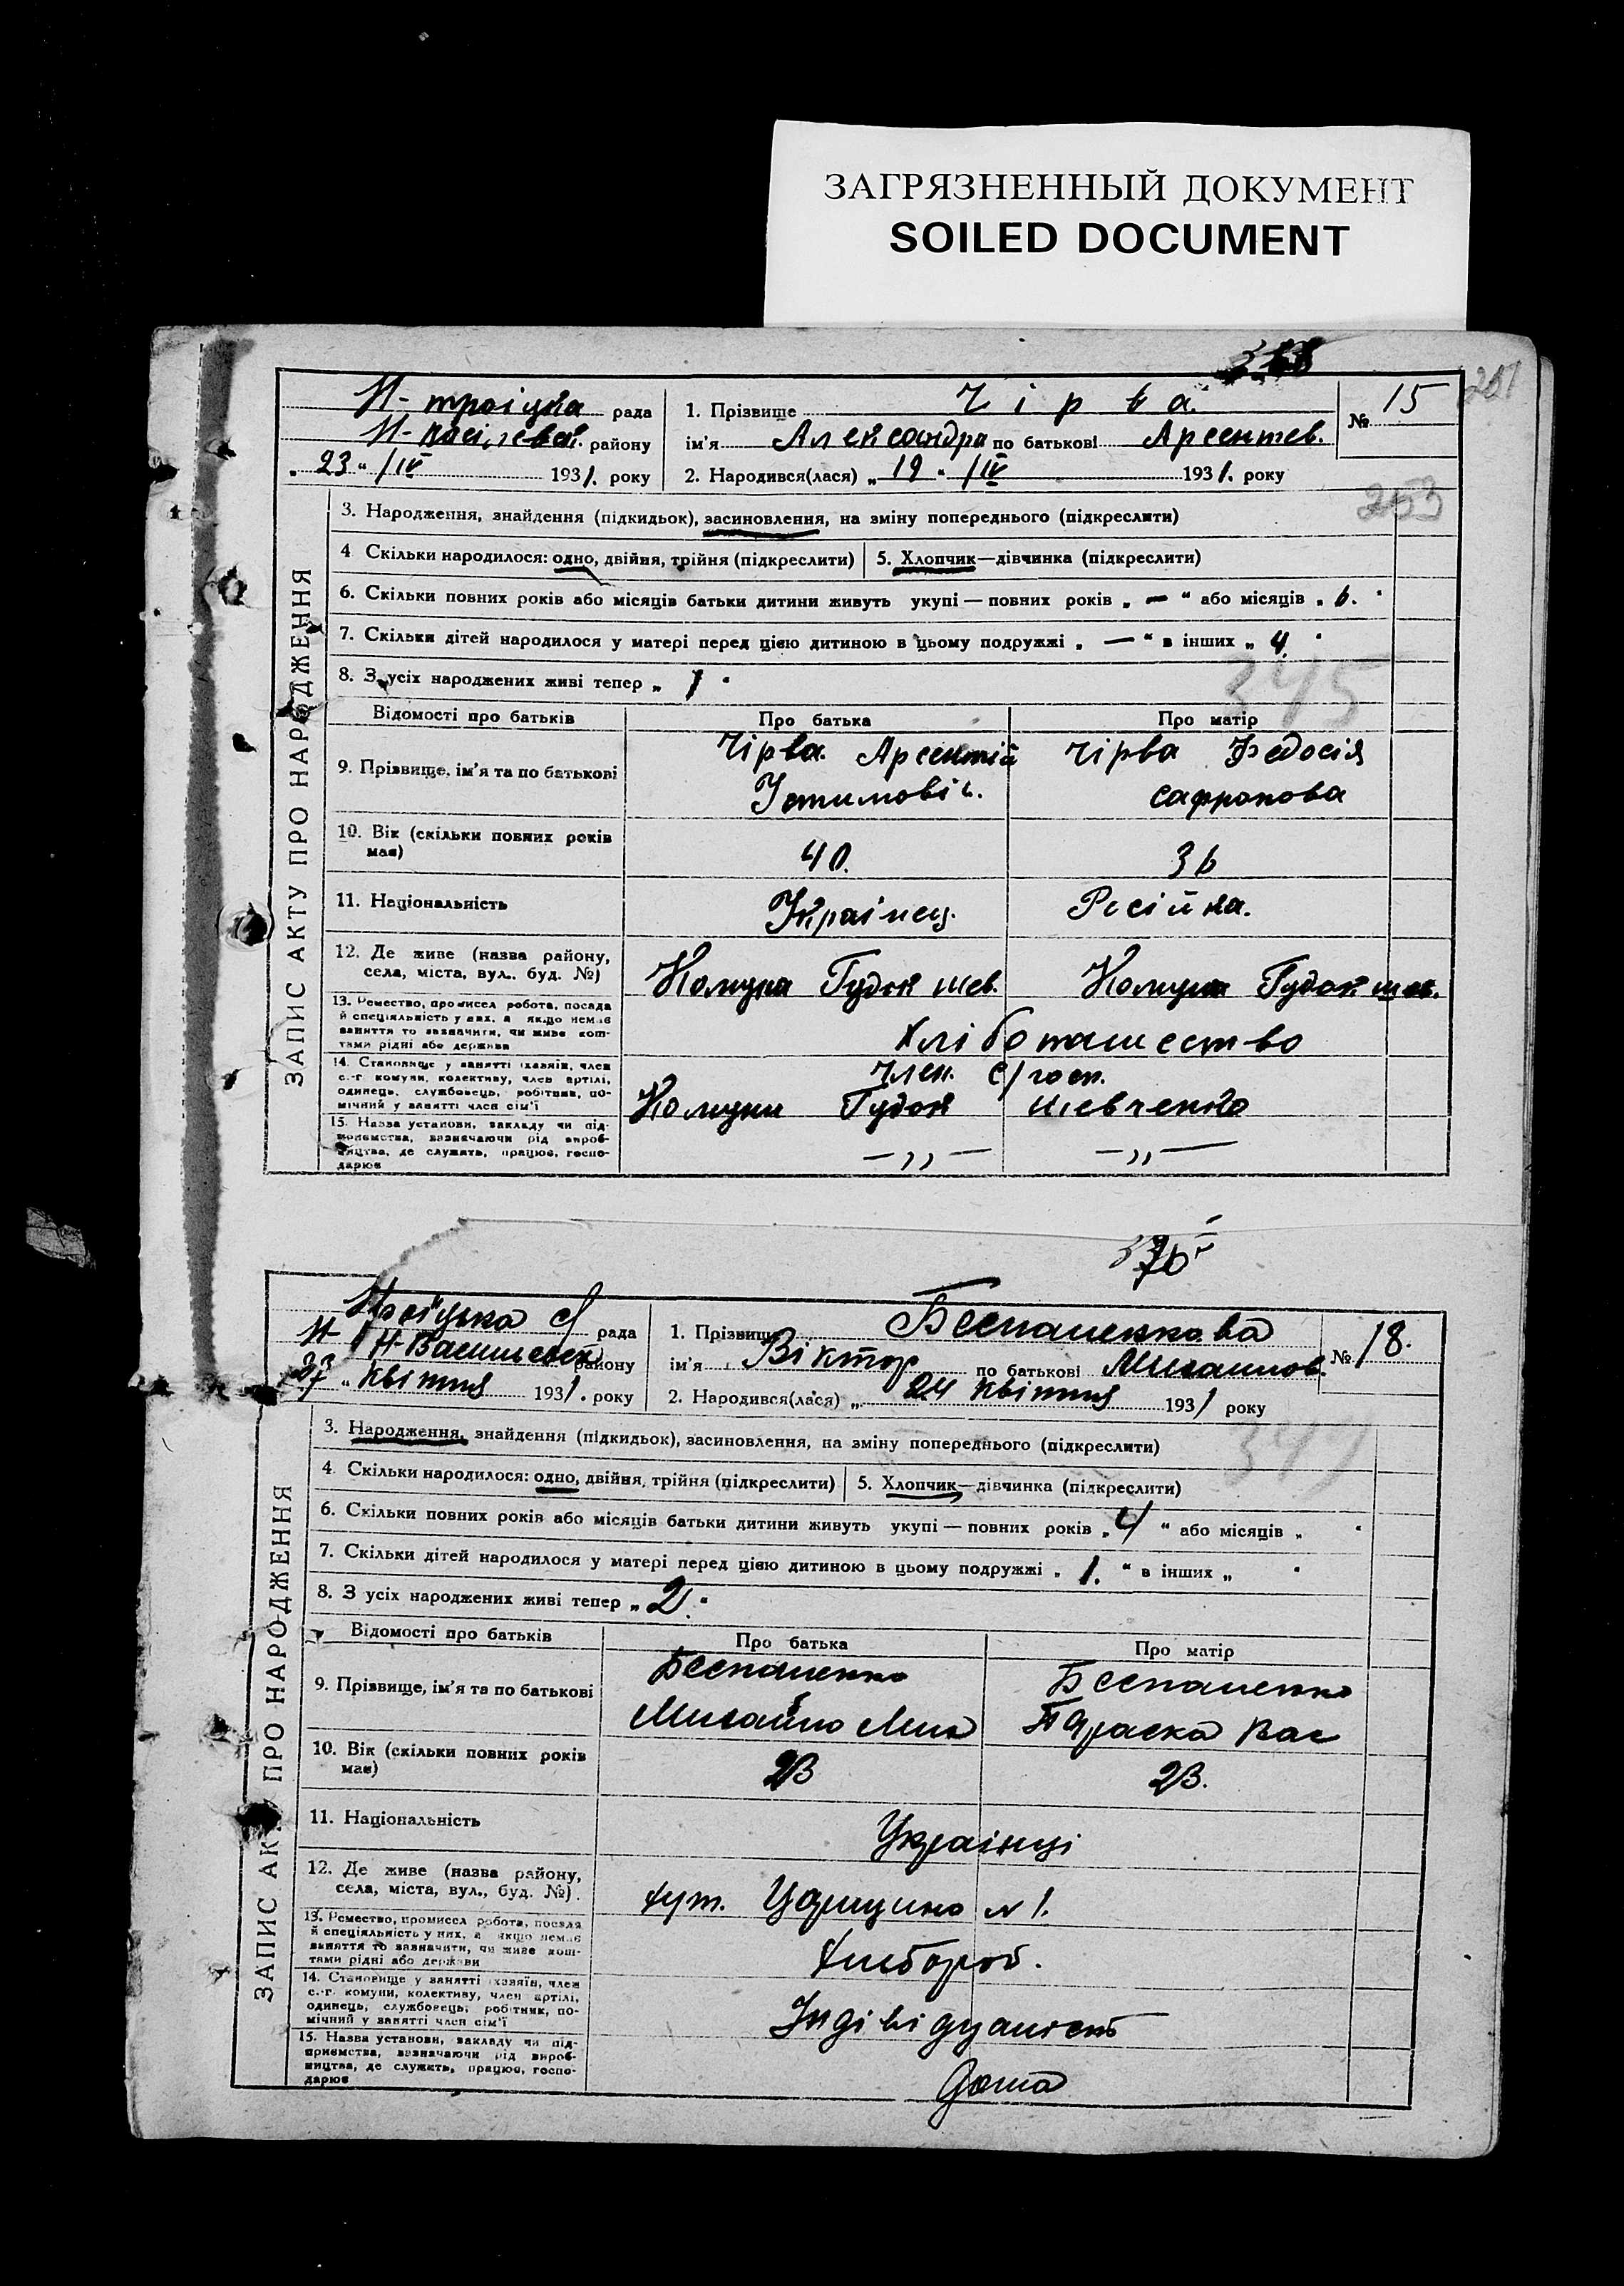 ЗАГРЯЗНЕННЫЙ ДОКУМЕНТ
SOILED DOCUMENT
251
Н-троіцка рада
району
„ 23 " /IV 1931. року
1. Прізвище Чірва.
№ 15
ім'я Александра по батькові Арсентев.
2. Народився(лася) „ 19 " /IV 1931. року
253
ЗАПИС АКТУ ПРО НАРОДЖЕННЯ
3. Народження, знайдення (підкидьок), засиновлення, на зміну попереднього (підкреслити)
4 Скільки народилося: одно, двійня, трійня (підкреслити) 5. Хлопчик—дівчинка (підкреслити)
6. Скільки повних років або місяців батьки дитини живуть укупі — повних років „ — " або місяців „ 6. "
7. Скільки дітей народилося у матері перед цією дитиною в цьому подружжі „ — " в інших „ 4. "
8. З усіх народжених живі тепер „ 1 "
345
Відомості про батьків Про батька Про матір
9. Прізвище, ім'я та по батькові
Чірва. Арсентій Чірва Федосія
Устимовіч. сафронова
10. Вік (скільки повних років має)
40. 36
11. Національність
Украінец. Російка.
12. Де живе (назва району, села, міста, вул., буд. №)
Комуна Гудок шев. Комуна Гудок шев.
13. Ремество, промисел робота, посада й спеціяльність у них, а якщо немає заняття то зазначити, чи живе коштами рідні або держави
14. Становище у занятті (хазяїн, член с.-г комуни, колективу, член артілі, одинець, службовець, робітник, помічний у занятті член сім'ї
Член. с/госп.
Комуни Гудок шевченко
15. Назва установи, закладу чи підприємства, зазначаючи рід виробництва, де служить, працює, господарює
— „ — — „ —
370
Троіцька рада
Н-Васильевск району
27 " квітня 1931. року
1. Прізвище Беспаленкова
№ 18.
ім'я Віктор по батькові Михаилов.
2. Народився(лася) „ 24 квітня 1931 року
347
ЗАПИС АКТУ ПРО НАРОДЖЕННЯ
3. Народження, знайдення (підкидьок), засиновлення, на зміну попереднього (підкреслити)
4. Скільки народилося: одно, двійня, трійня (підкреслити) 5. Хлопчик—дівчинка (підкреслити)
6. Скільки повних років або місяців батьки дитини живуть укупі — повних років „ 4 " або місяців „ "
7. Скільки дітей народилося у матері перед цією дитиною в цьому подружжі „ 1. " в інших „ "
8. З усіх народжених живі тепер „ 2. "
Відомості про батьків Про батька Про матір
9. Прізвище, ім'я та по батькові
Беспаленко Беспаленко
Михайло Мих Параска Вас
10. Вік (скільки повних років має)
23 23.
11. Національність
Украінці
12. Де живе (назва району, села, міста, вул., буд. №).
хут. Царицино № 1.
13. Ремество, промисел робота, посада й спеціяльність у них, а якщо немає заняття то зазначити, чи живе коштами рідні або держави
Хлібороб.
14. Становище у занятті (хазяїн, член с.-г. комуни, колективу, член артілі, одинець, службовець, робітник, помічний у занятті член сім'ї
15. Назва установи, закладу чи підприємства, зазначаючи рід виробництва, де служить, працює, господарює
дома